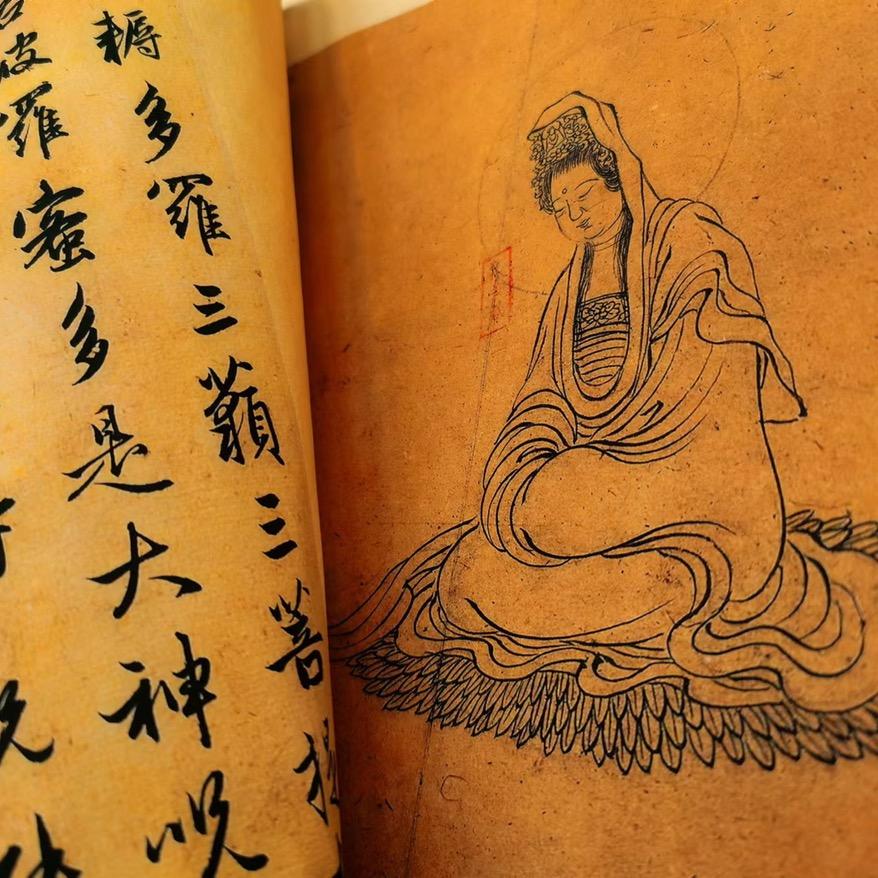 耨多羅三藐三菩提
波羅蜜多是大神呪